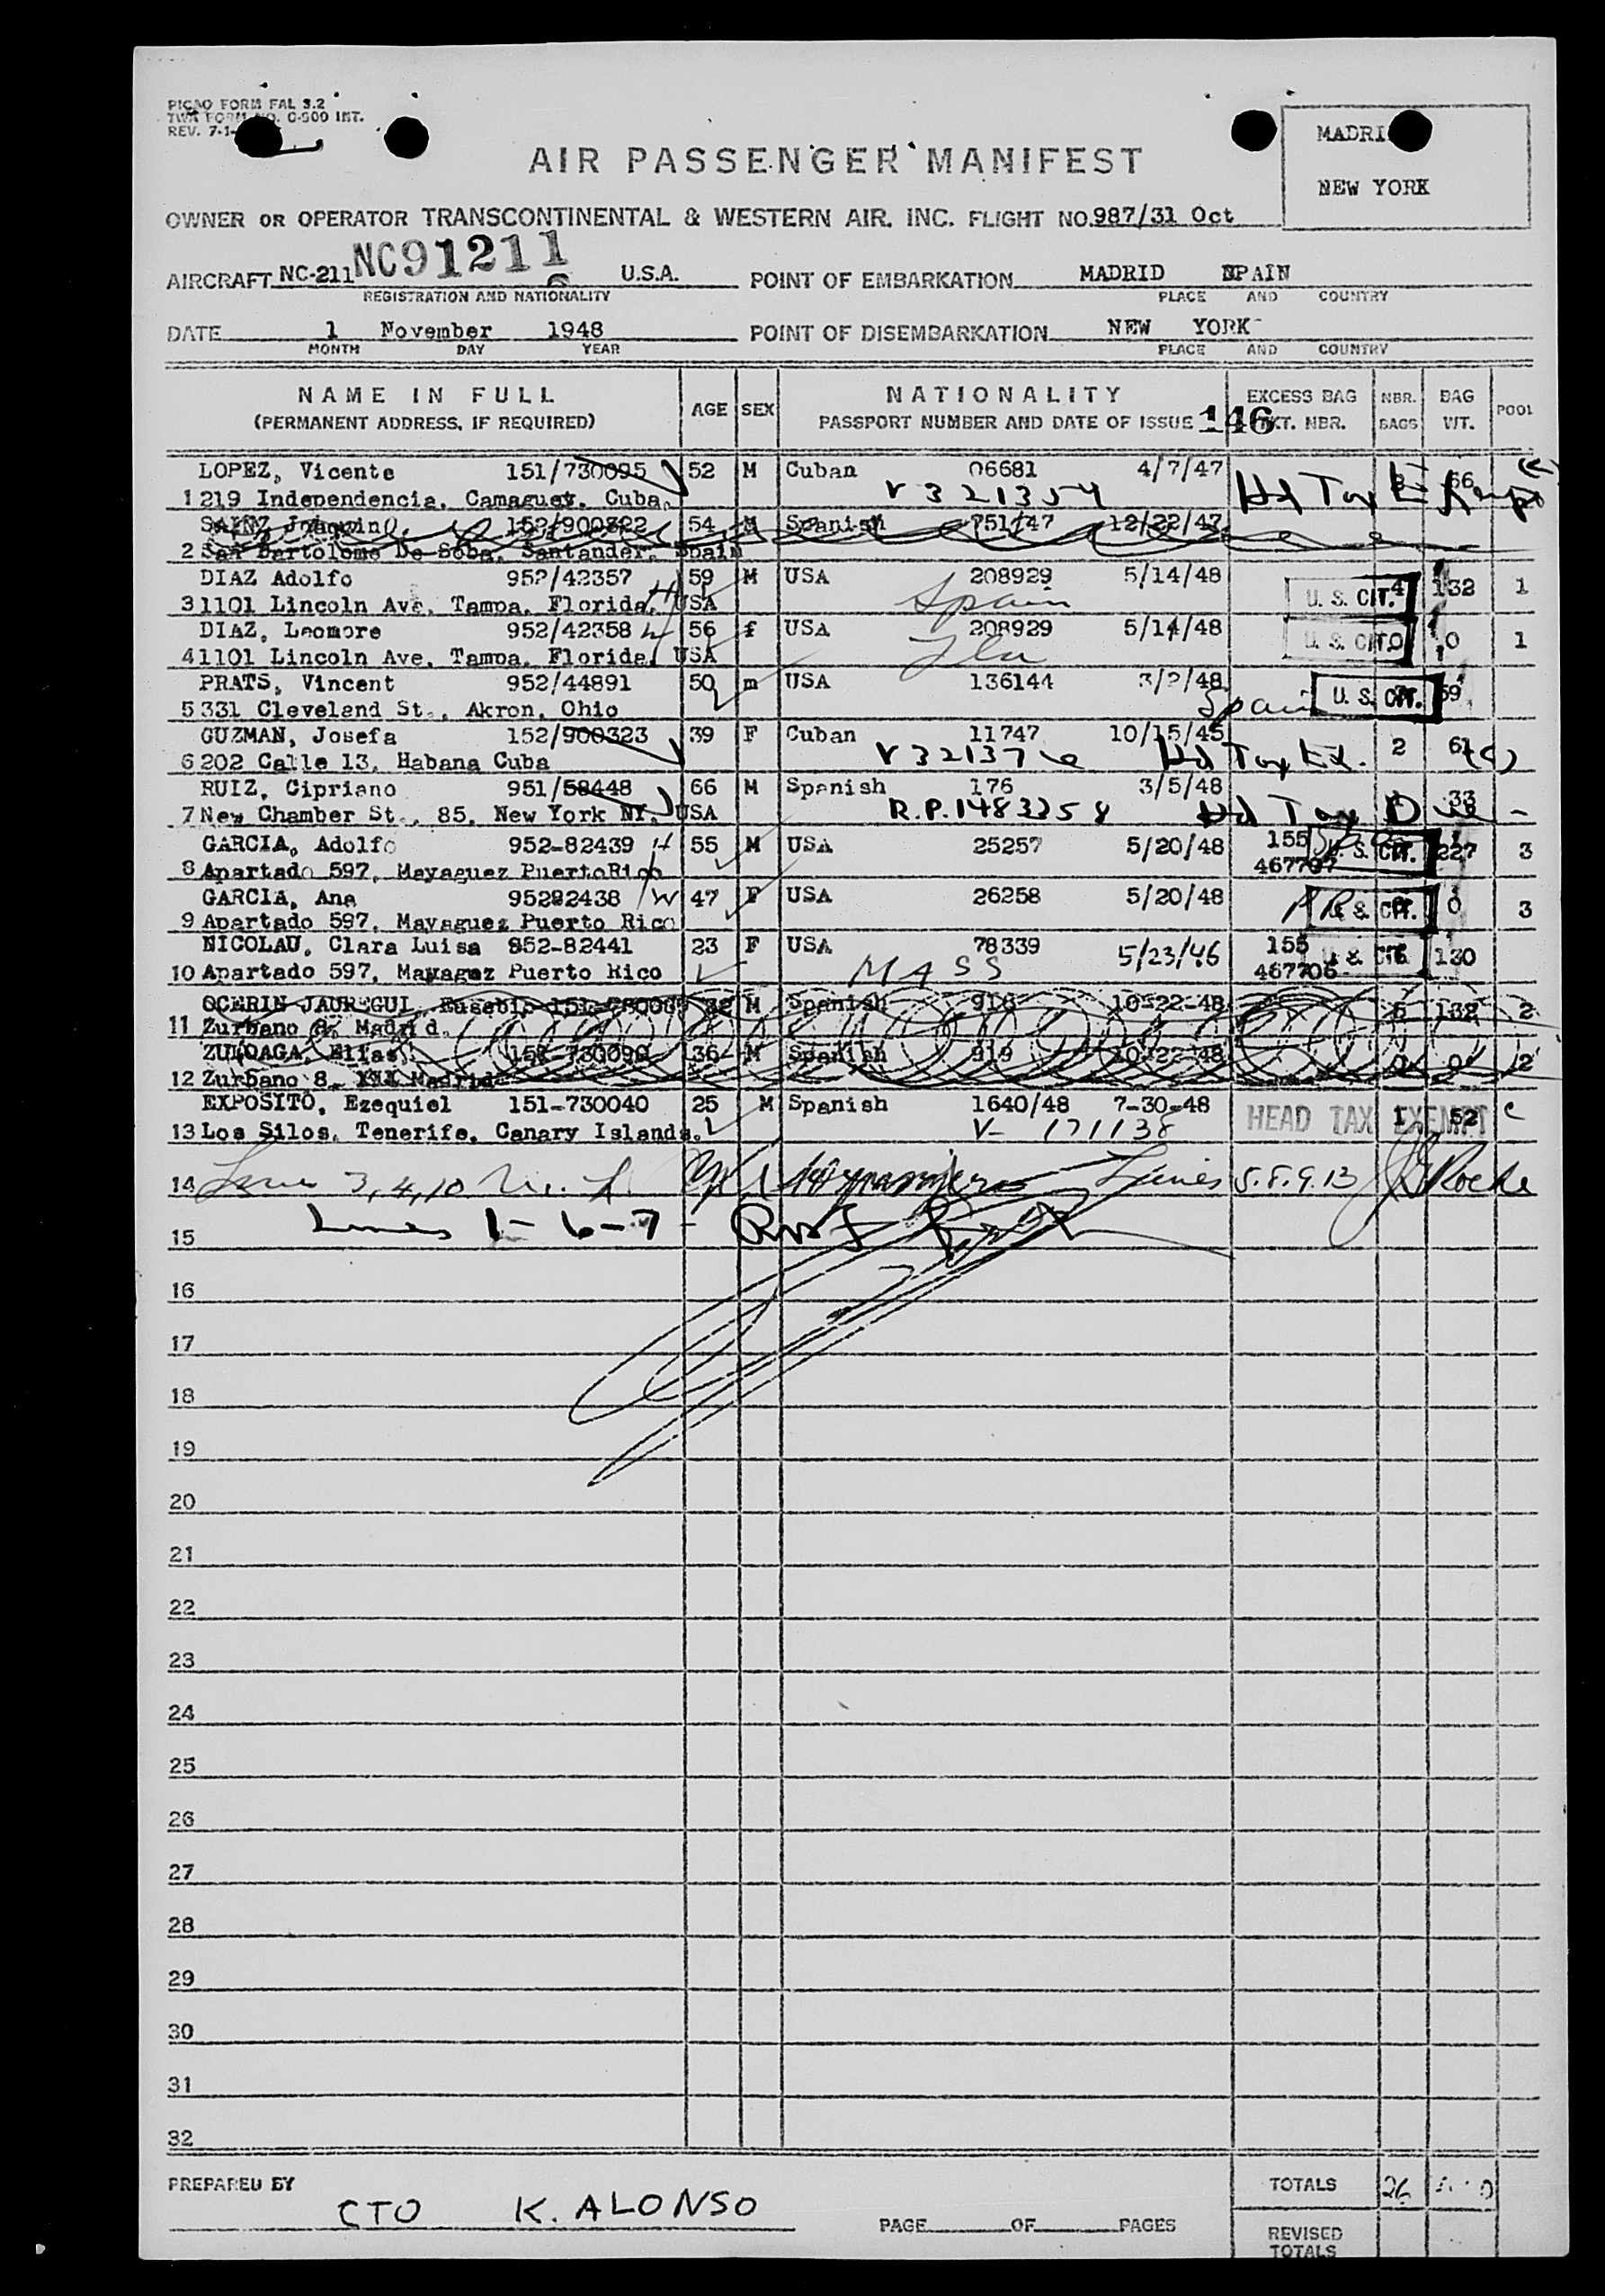 PICAO FORM FAL 3.2
TWA FORM NO. 0-900 INT.
REV. 7-1-
MADRI
NEW YORK
AIR PASSENGER MANIFEST
OWNER OR OPERATOR TRANSCONTINENTAL & WESTERN AIR. INC. FLIGHT NO. 987/31 Oct
AIRCRAFT NC-211 NC91211 U.S.A. POINT OF EMBARKATION MADRID SPAIN
REGISTRATION AND NATIONALITY PLACE AND COUNTRY
DATE 1 November 1948 POINT OF DISEMBARKATION NEW YORK
MONTH DAY YEAR PLACE AND COUNTRY
NAME IN FULL AGE SEX NATIONALITY EXCESS BAG NBR. BAG POOL
(PERMANENT ADDRESS, IF REQUIRED) PASSPORT NUMBER AND DATE OF ISSUE 146 TKT. NBR. BAGS WT.
LOPEZ, Vicente 151/730095 52 M Cuban 06681 4/7/47 66
1 219 Independencia, Camaguey, Cuba. V 321354 Hd Tax Exempt
SAINZ Joaquin 152/900322 54 M Spanish 751/47 12/22/47
2 San Bertolome De Soba, Santander, Spain
DIAZ Adolfo 952/42357 59 M USA 208929 5/14/48 U. S. CIT. 4 132 1
3 1101 Lincoln Ave, Tampa, Florida, USA H Spain
DIAZ, Leomore 952/42358 W 56 f USA 208929 5/14/48 U. S. CIT. 0 0 1
4 1101 Lincoln Ave, Tampa, Florida, USA Fla
PRATS, Vincent 952/44891 50 m USA 136144 3/2/48 U. S. CIT. 59
5 331 Cleveland St., Akron, Ohio Spain
GUZMAN, Josefa 152/900323 39 F Cuban 11747 10/15/45 2 61
6 202 Calle 13, Habana Cuba V 321376 Hd Tax Ex. (C)
RUIZ, Cipriano 951/58448 66 M Spanish 176 3/5/48 33
7 New Chamber St., 85, New York NY. USA R.P.1483358 Hd Tax Due -
GARCIA, Adolfo 952-82439 H 55 M USA 25257 5/20/48 155 U. S. CIT. 227 3
8 Apartado 597, Mayaguez PuertoRico 467707
GARCIA, Ana 95282438 W 47 F USA 26258 5/20/48 PR U. S. CIT. 0 3
9 Apartado 597, Mayaguez Puerto Rico
NICOLAU, Clara Luisa 952-82441 23 F USA 78339 5/23/46 155 U. S. CIT. 130
10 Apartado 597, Mayagez Puerto Rico MASS 467706
OCERIN JAUREGUI, Eusebio 32 M Spanish 918 10-22-48 5 132 2
11 Zurbano 8, Madrid.
ZULOAGA, Elias 36 M Spanish 919 10-22-48 0 0 2
12 Zurbano 8, Madrid
EXPOSITO, Ezequiel 151-730040 25 M Spanish 1640/48 7-30-48 HEAD TAX EXEMPT 1 52 C
13 Los Silos, Tenerife, Canary Islands. V- 171138
14 Lines 3,4,10 Lines 5.8.9.13
15 Lines 1-6-7-
16
17
18
19
20
21
22
23
24
25
26
27
28
29
30
31
32
PREPARED BY TOTALS 26
CTO K. ALONSO
PAGE OF PAGES REVISED
TOTALS